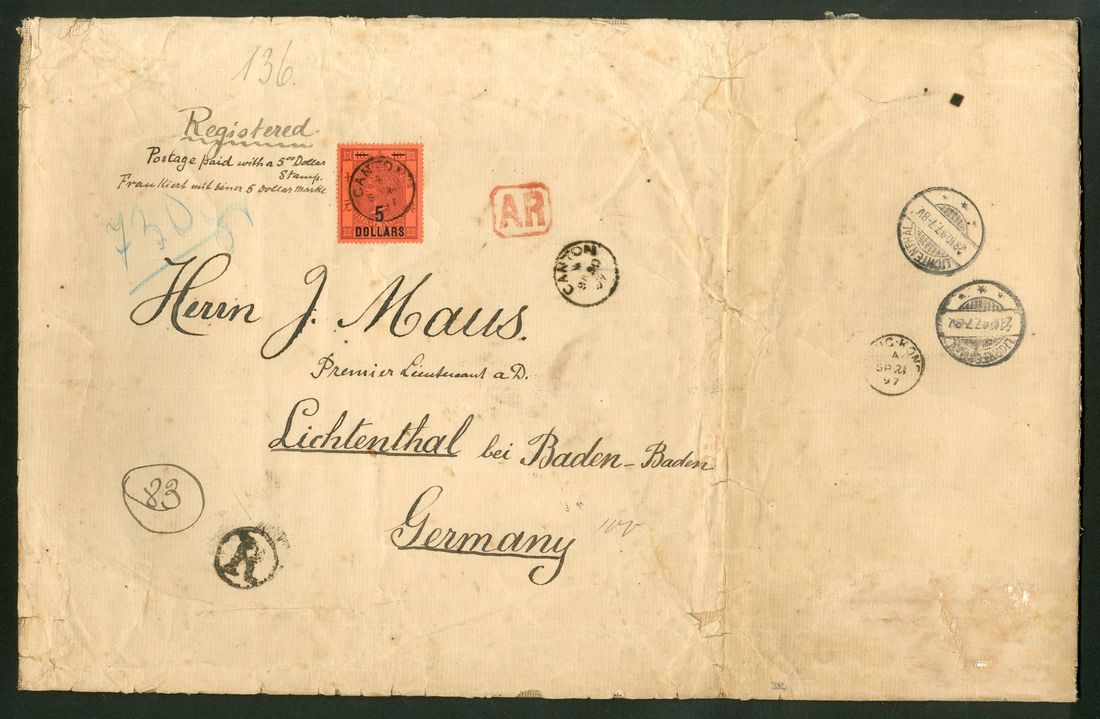 136.
Registered.
Postage paid with a 5 00 Dollar
Stamp.
Frankiert mit einer 5 Dollar Marke
730
CANTON
5
DOLLARS
AR
CANTON
A
SP 20
97
Herrn J. Maus.
Premier Lieutenant a D.
Lichtenthal bei Baden-Baden
Germany
83
R
LICHTENTHAL
23.10.97.7-8V.
LICHTENTHAL
23.10.97.7-8V.
HONG-KONG
A
SP 21
97